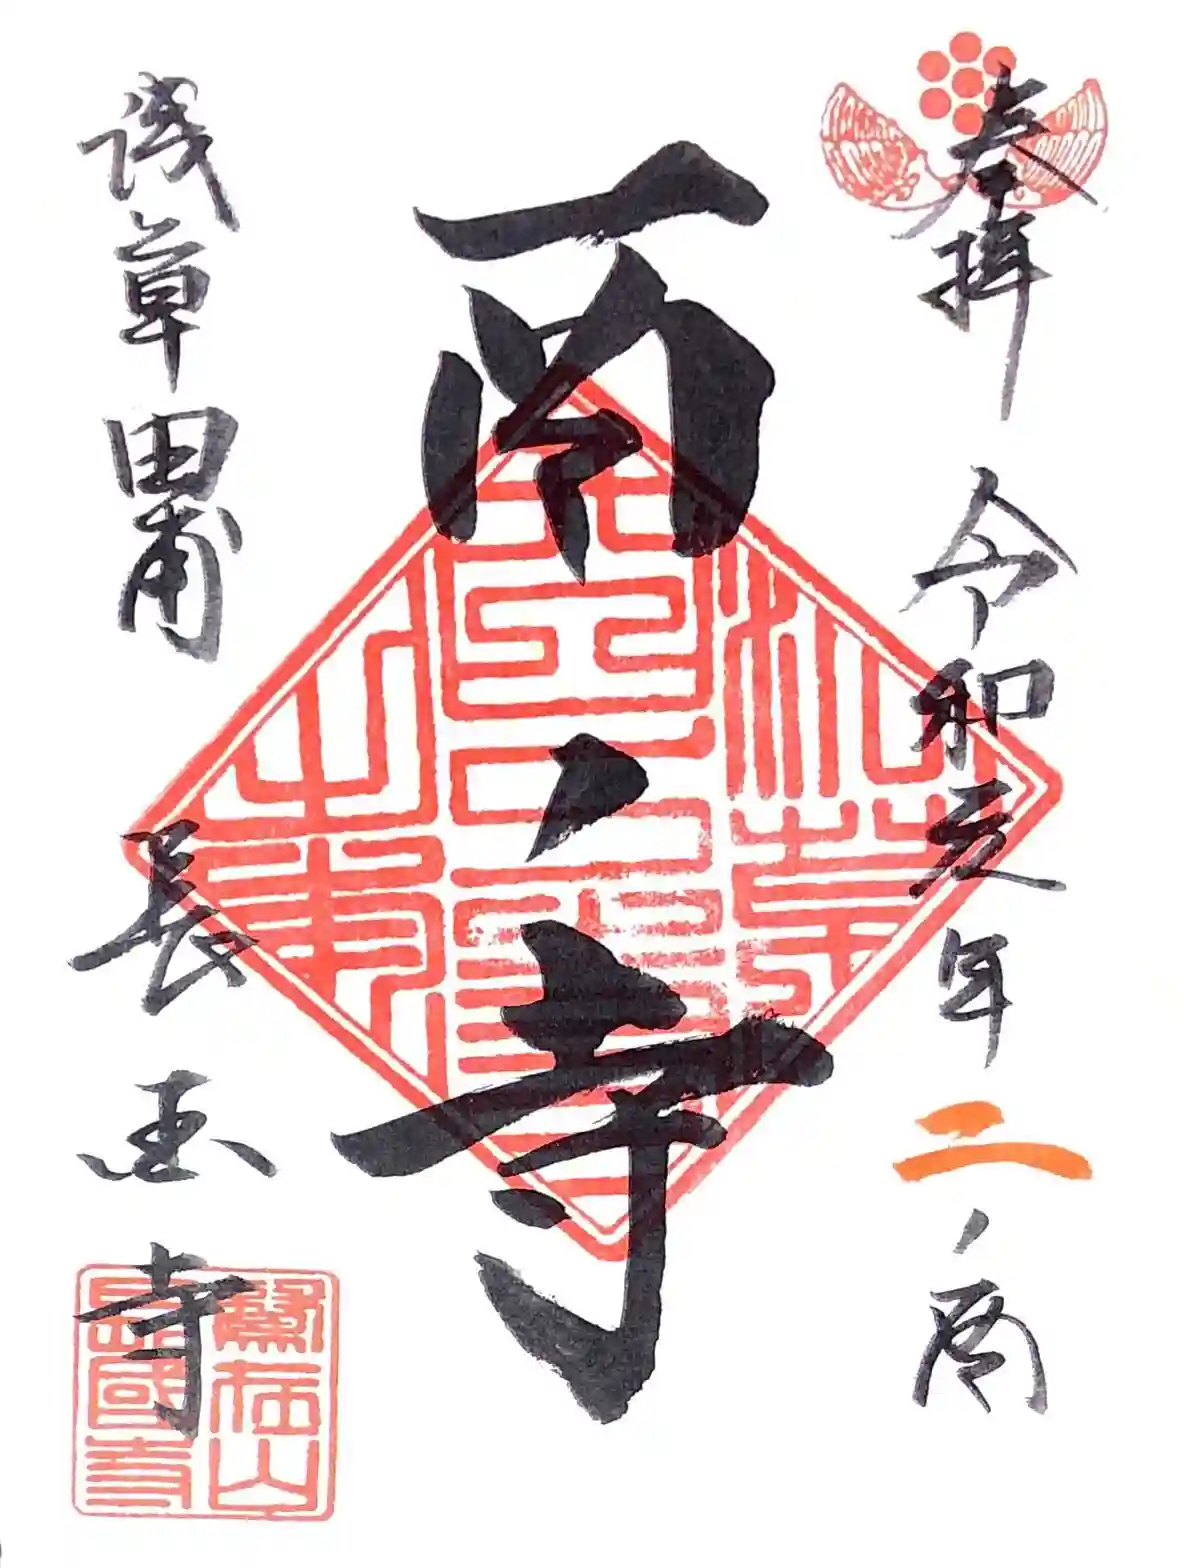 奉拝 令和亥年二ノ酉
酉ノ寺
浅草田甫 長国寺
鷲在山
長國寺